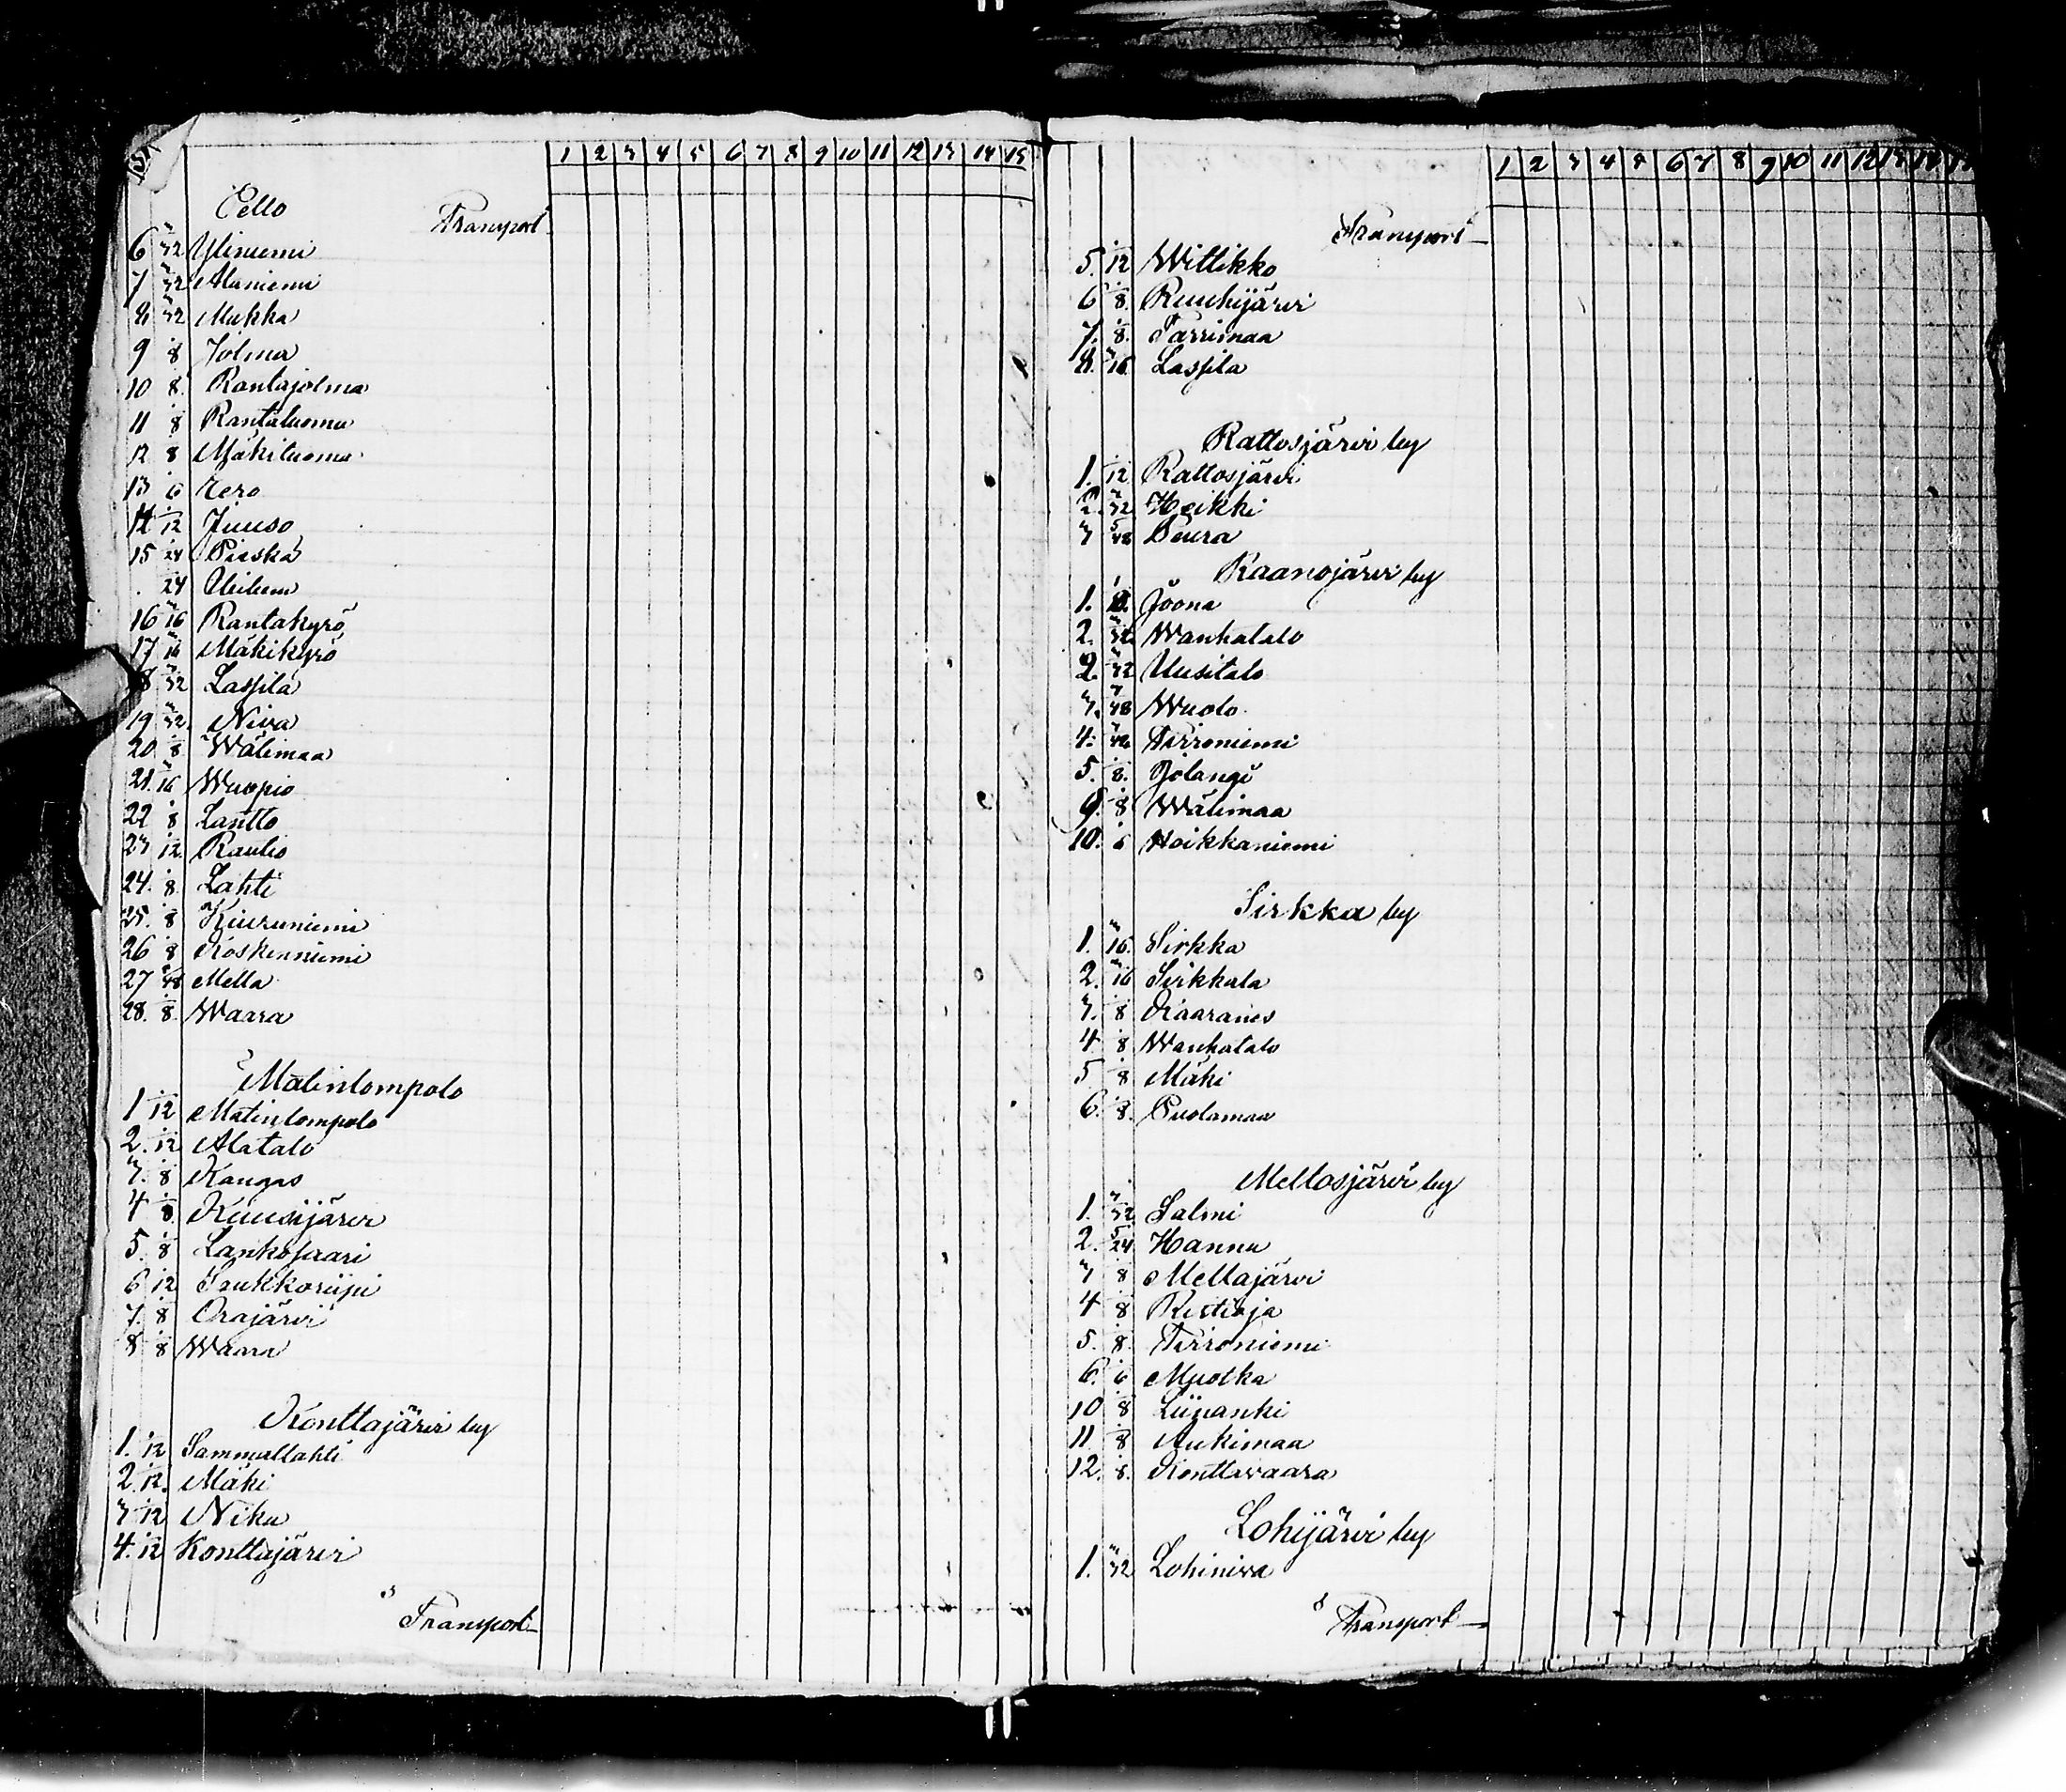 1 2 3 4 5 6 7 8 9 10 11 12 13 14 15
Pello
Transport
6 3/32 Yliniemi
7 3/32 Alaniemi
8 3/32 Mukka
9 1/8 Jolma
10 1/8 Rantajolma
11 1/8 Rantaluoma
12 1/8 Mäkiluoma
13 1/6 Tero
14 1/12 Juuso
15 1/24 Piiska
1/24
16 3/16 Rantakyrö
17 3/16 Mäkikyrö
18 3/32 Lassila
19 3/32 Niva
20 1/8 Wälimaa
21 3/16 Wuopio
22 1/8 Lantto
23 1/12 Rautio
24. 1/8 Lahti
25. 1/8 Kiuruniemi
26 1/8 Koskenniemi
27 /48 Mella
28. 1/8 Waara
Matinlompolo
1 1/12 Matinlompolo
2. 1/12 Alatalo
3. 1/8 Kangas
4 1/8 Kuusijärvi
5. 1/8 Lankosaari
6 1/12 Saukkoriipi
7. 1/8 Orajärvi
8 1/8 Waara
Konttajärvi by
1. 1/12 Sammallahti
2. 1/12. Mäki
3 1/12 Niku
4. 1/12 Konttajärvi
Transport
1 2 3 4 5 6 7 8 9 10 11 12 13 14 15
Transport
5. 1/12 Wittikko
6 1/8. Ruuhijärvi
7. 1/8. Parrimaa
8. 3/16 Lassila
Rattosjärvi by
1. 1/12 Rattosjärvi
2. 3/32 Heikki
3 5/48 Seura
Raanojärvi by
1. Joona
2. 3/32 Wanhatalo
2. 3/32 Uusitalo
3. 7/48 Wuolo
4. Tirroniemi
5. 1/8. Jolangi
9. 1/8 Wälimaa
10. 1/6 Hoikkaniemi
Sirkka by
1. 3/16. Sirkka
2. 3/16 Sirkkala
3. 1/8 Kaaranes
4 1/8 Wanhatalo
5 1/8 Mäki
6. 1/8. Puolamaa
Meltosjärvi by
1. 3/32 Salmi
2. 5/24 Hannu
3 1/8 Meltajärvi
4 1/8 Ristioja
5. 1/8. Tirroniemi
6. 1/6 Muotka
10 1/8 Liinanki
11. 1/8 Aukimaa
12. 1/8. Konttavaara
Lohijärvi by
1. 3/32 Lohiniva
Transport